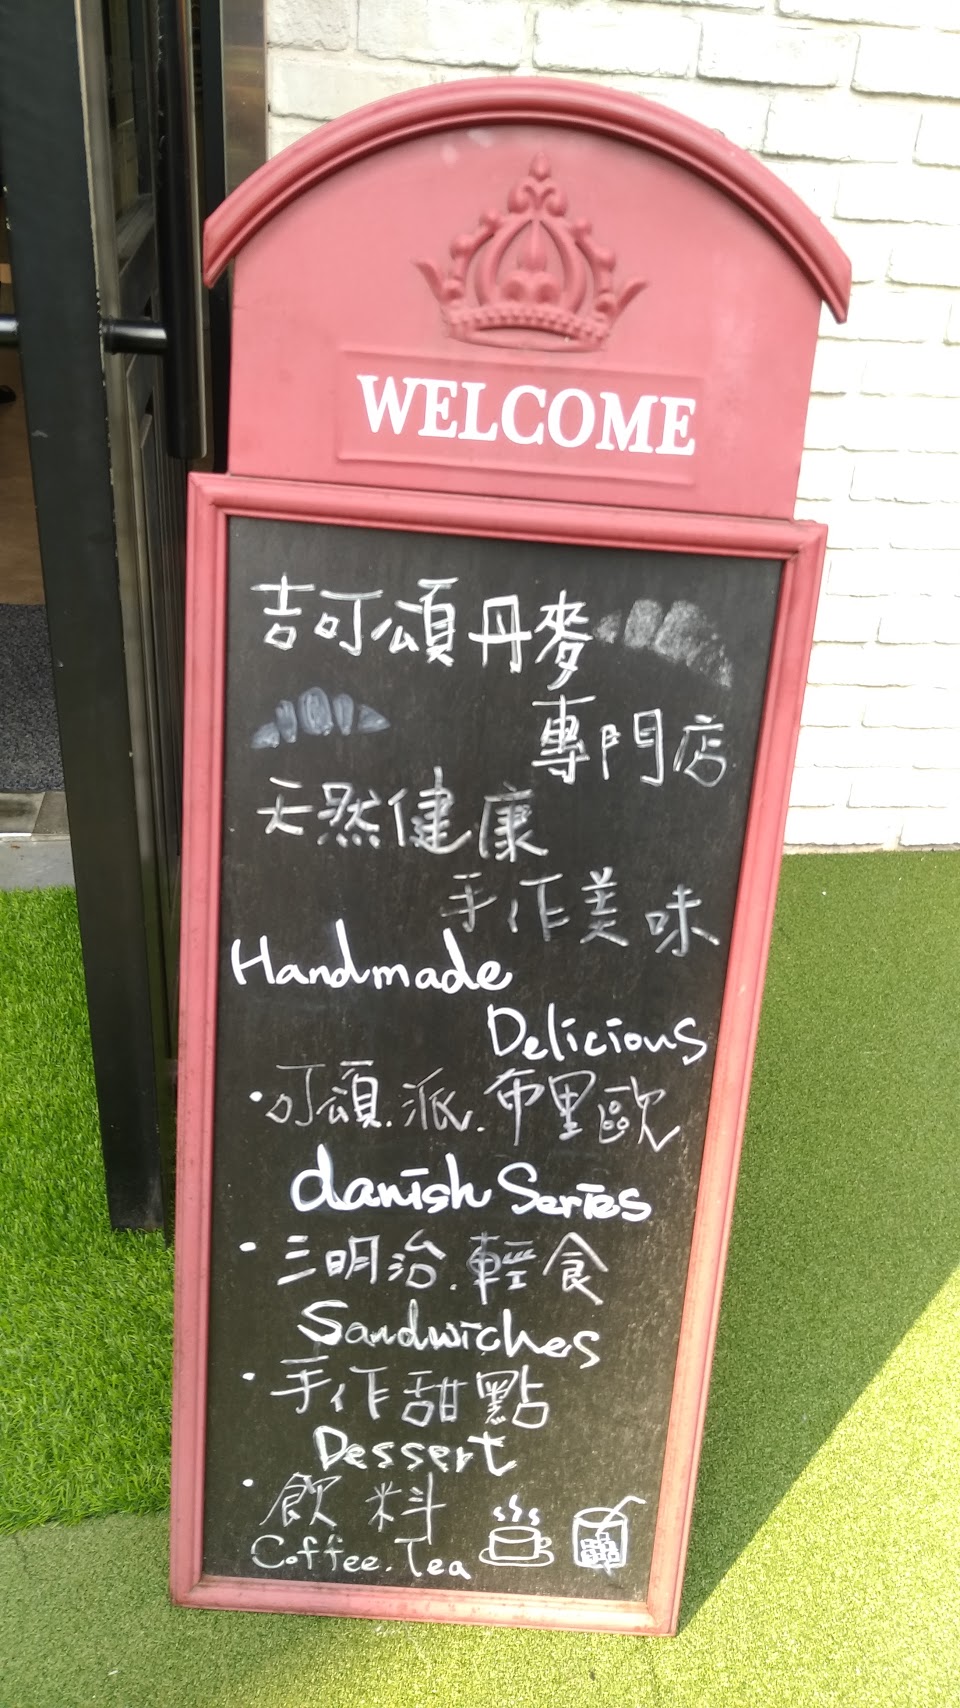 WELCOME
吉可頌丹麥
專門店
天然健康
手作美味
Handmade
Delicious
·可頌.派.布里歐
danish Series
·三明治.輕食
Sandwiches
·手作甜點
Dessert
·飲料
Coffee.Tea